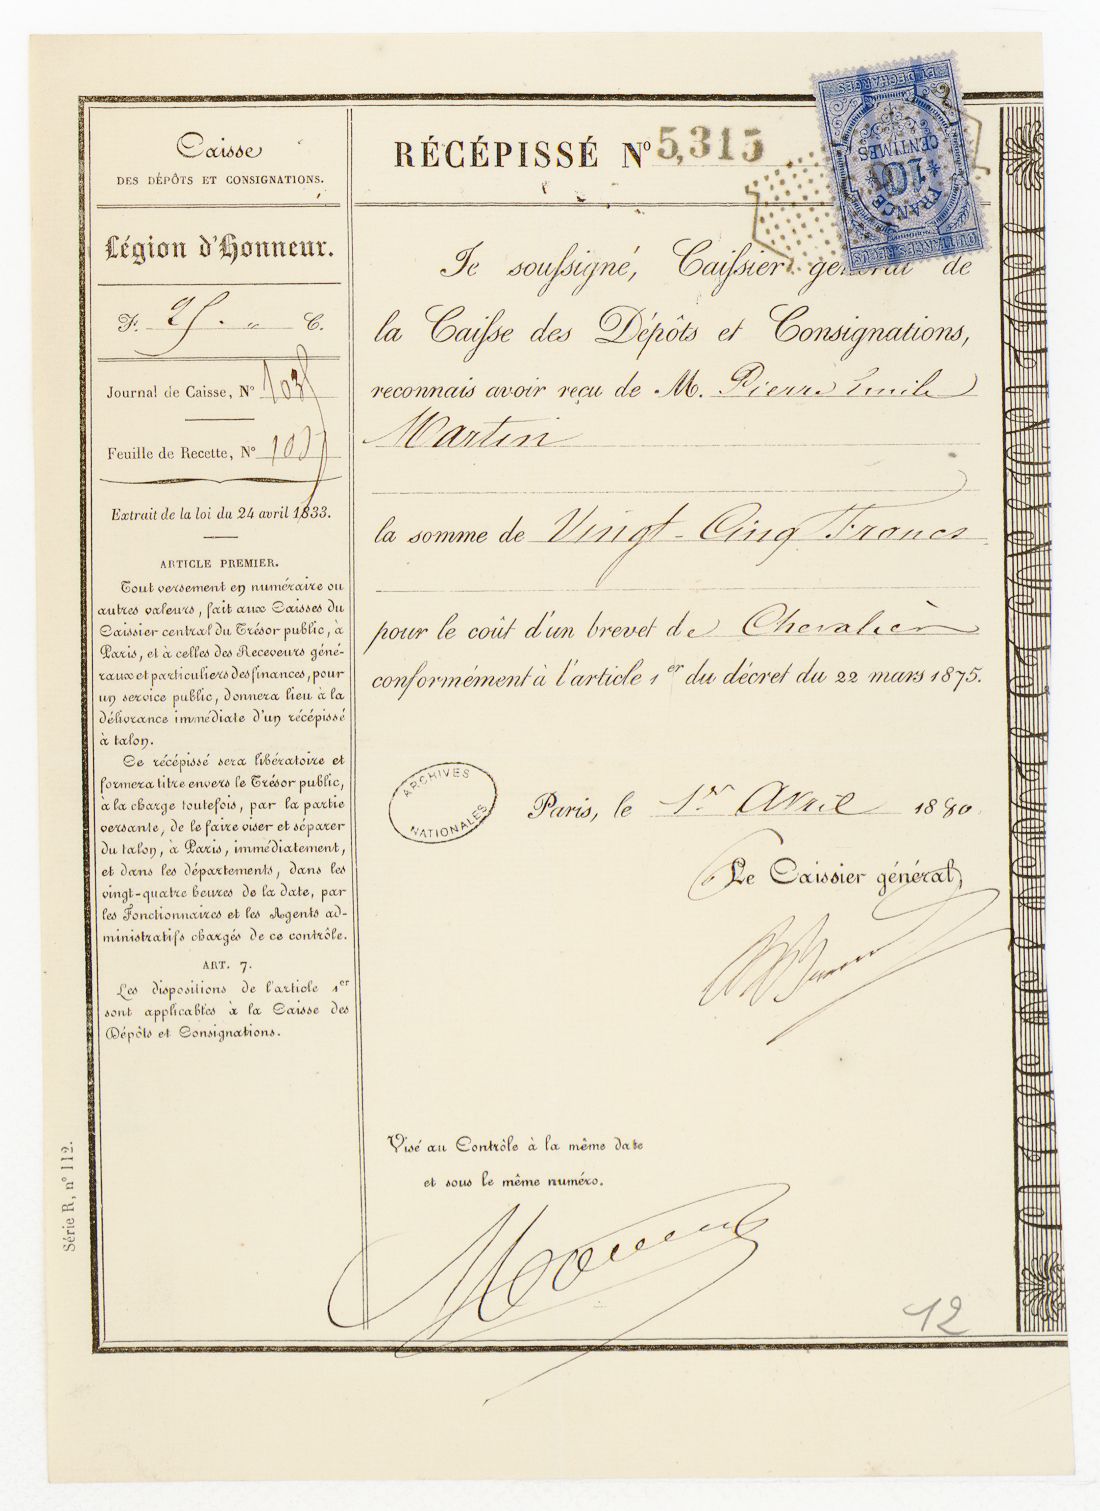 Caisse
DES DÉPÔTS ET CONSIGNATIONS.
Légion d'Honneur.
F. 25. " C.
Journal de Caisse, N° 1035
Feuille de Recette, N°
Extrait de la loi du 24 avril 1833.
ARTICLE PREMIER.
Tout versement en numéraire ou
autres valeurs, fait aux Caisses du
Caissier central du Trésor public, à
Paris, et à celles des Receveurs géné-
raux et particuliers des finances, pour
un service public, donnera lieu à la
délivrance immédiate d'un récépissé
à talon.
Ce récépissé sera libératoire et
formera titre envers le Trésor public,
à la charge toutefois, par la partie
versante, de le faire viser et séparer
du talon, à Paris, immédiatement,
et dans les départements, dans les
vingt-quatre heures de la date, par
les Fonctionnaires et les Agents ad-
ministratifs chargés de ce contrôle.
ART. 7.
Les dispositions de l'article 1er
sont applicables à la Caisse des
Dépôts et Consignations.
Série R, n° 112.
RÉCÉPISSÉ N° 5,315
QUITTANCES REÇUS
FRANCE
10
CENTIMES
ET DÉCHARGES
2
Je soussigné, Caissier général de
la Caisse des Dépôts et Consignations,
reconnais avoir reçu de M. Pierre Emile
Martin
la somme de Vingt-Cinq Francs
pour le coût d'un brevet de Chevalier
conformément à l'article 1er du décret du 22 mars 1875.
ARCHIVES
NATIONALES
Paris, le 1er Avril 1880
Le Caissier général,
Visé au Contrôle à la même date
et sous le même numéro.
12